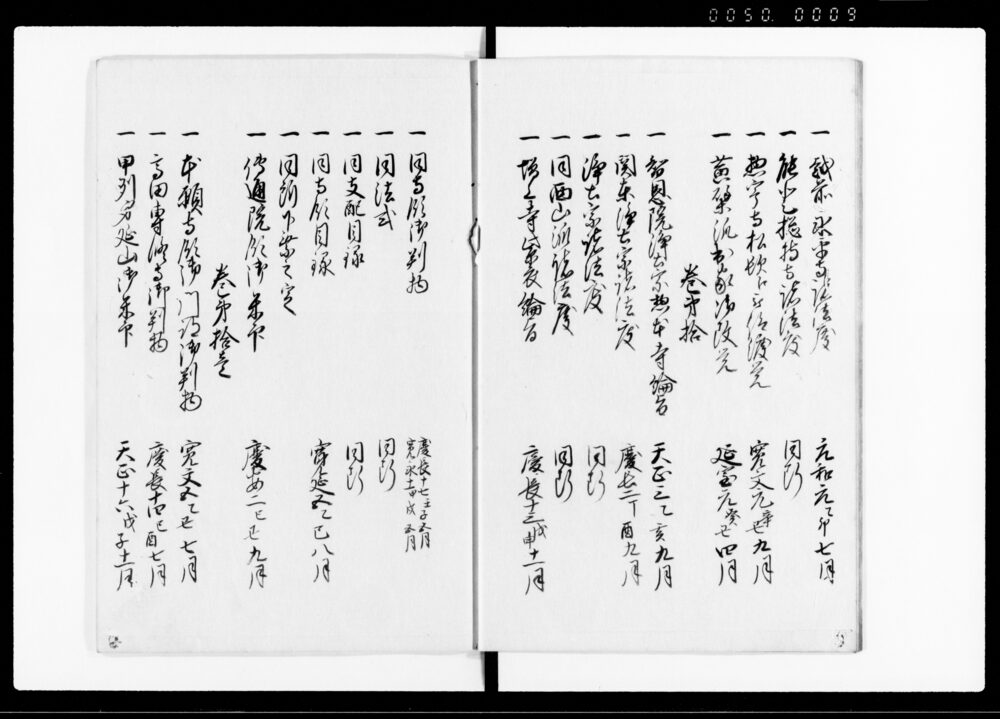 0050.0009
一 越前永平寺諸法度 元和元乙卯七月
一 能登総持寺諸法度 同断
一 惣寧寺松 寛文元辛丑九月
一 黄檗派出家 改元 延宝元癸丑四月
巻第拾
一 智恩院浄土宗惣本寺綸旨 天正三乙亥九月
一 関東浄土宗諸法度 慶長二丁酉九月
一 浄土宗諸法度 同断
一 同西山派諸法度 同断
一 増上寺紫衣綸旨 慶長十三戊申十一月
一 同寺領御判物 慶長十七壬子五月 寛永十一甲戌五月
一 同法式 同断
一 同支配目録 同断
一 同寺領目録 寛延 乙巳八月
一 同 下 之定
一 伝通院領御朱印 慶安二己丑九月
巻第拾壱
一 本願寺領 御判物 寛文五乙巳七月
一 高田専修寺御判物 慶長十四己酉七月
一 甲州身延山御朱印 天正十六戊子十一月